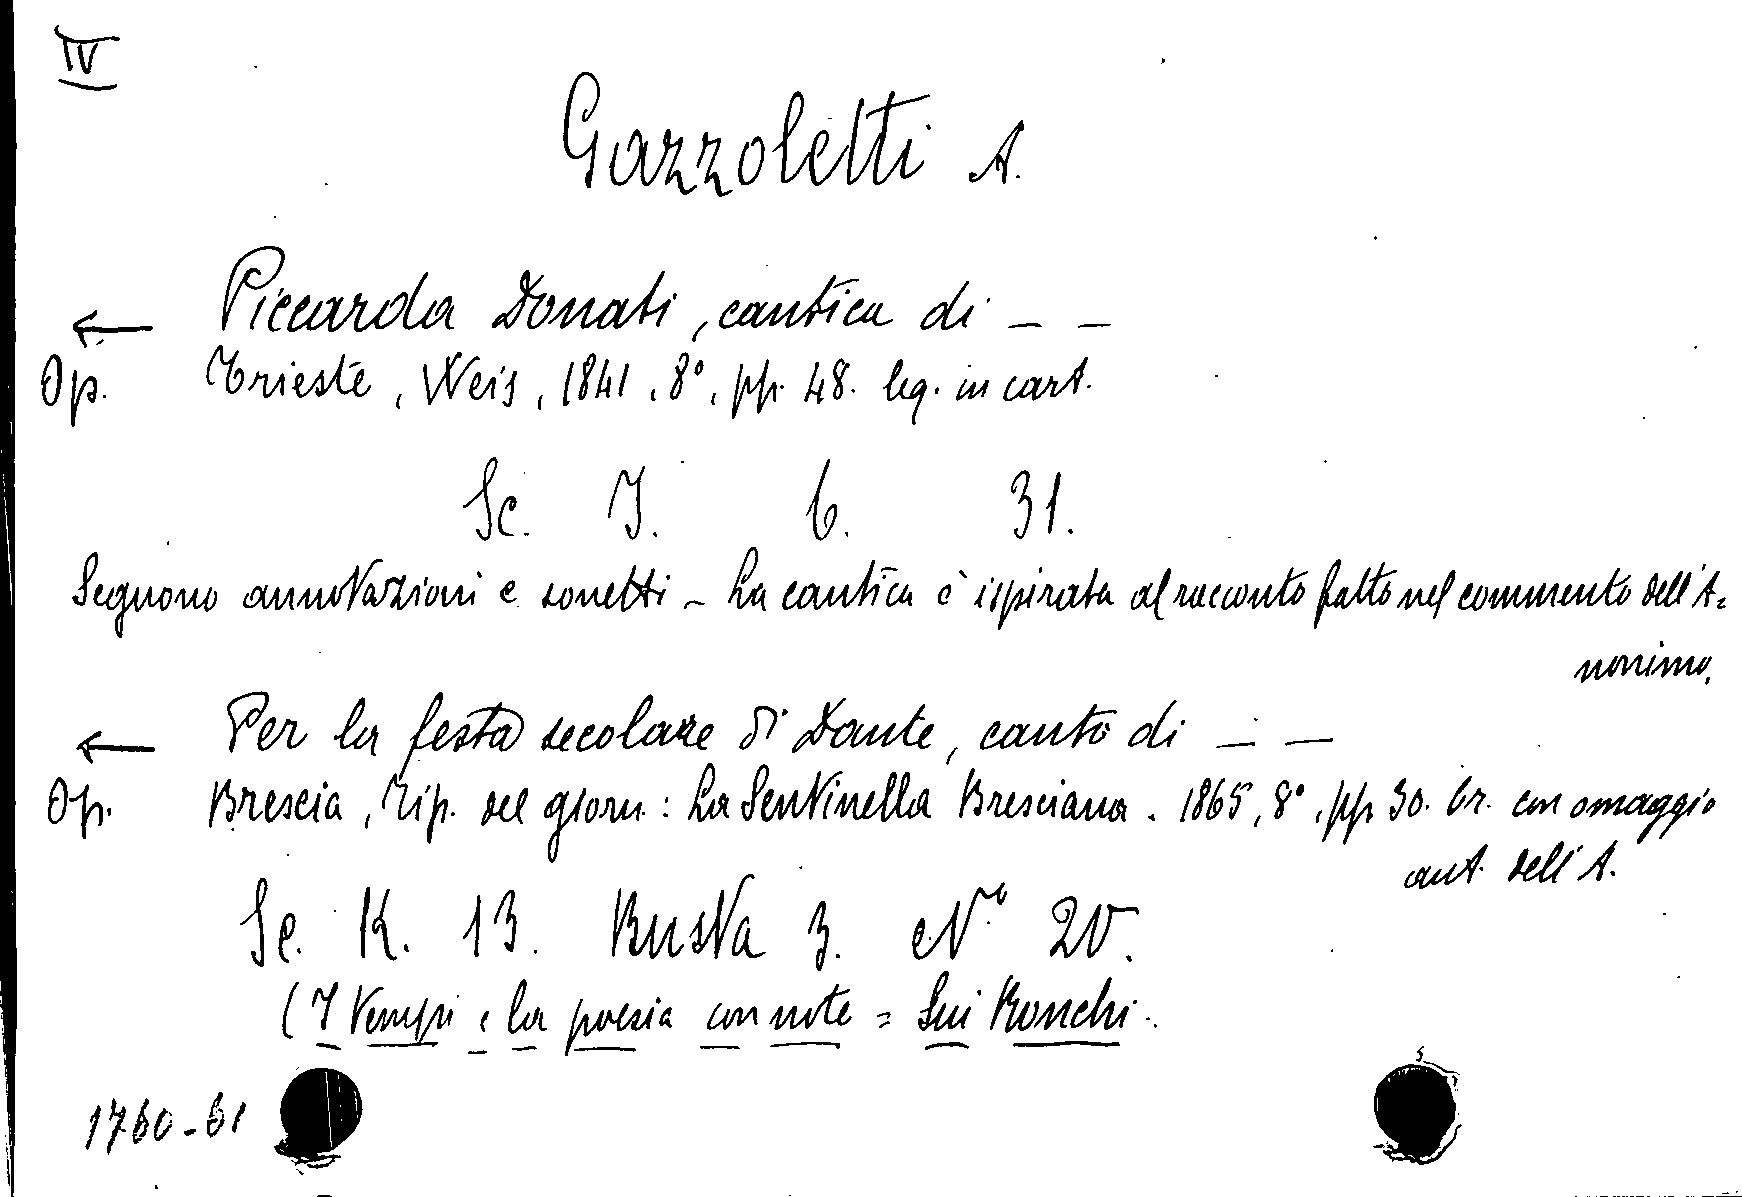 IV
Gazzoletti A.
← Piccarda Donati, cantica di _ _
Op. Trieste, Weis, 1841, 8°, pp. 48. leg. in cart.
Sc. I. 6. 31.
Seguono annotazioni e sonetti - La cantica è ispirata al racconto fatto nel commento dell'A=
nonimo.
← Per la festa secolare di Dante, canto di _ _
Op. Brescia, Tip. del giorn: La Sentinella Bresciana. 1865, 8°, pp 30. br. con omaggio
aut. dell'A.
Sc. K. 13. Busta 3. N.° 20.
(I tempi e la poesia con note = Sui Ronchi.
1760-61